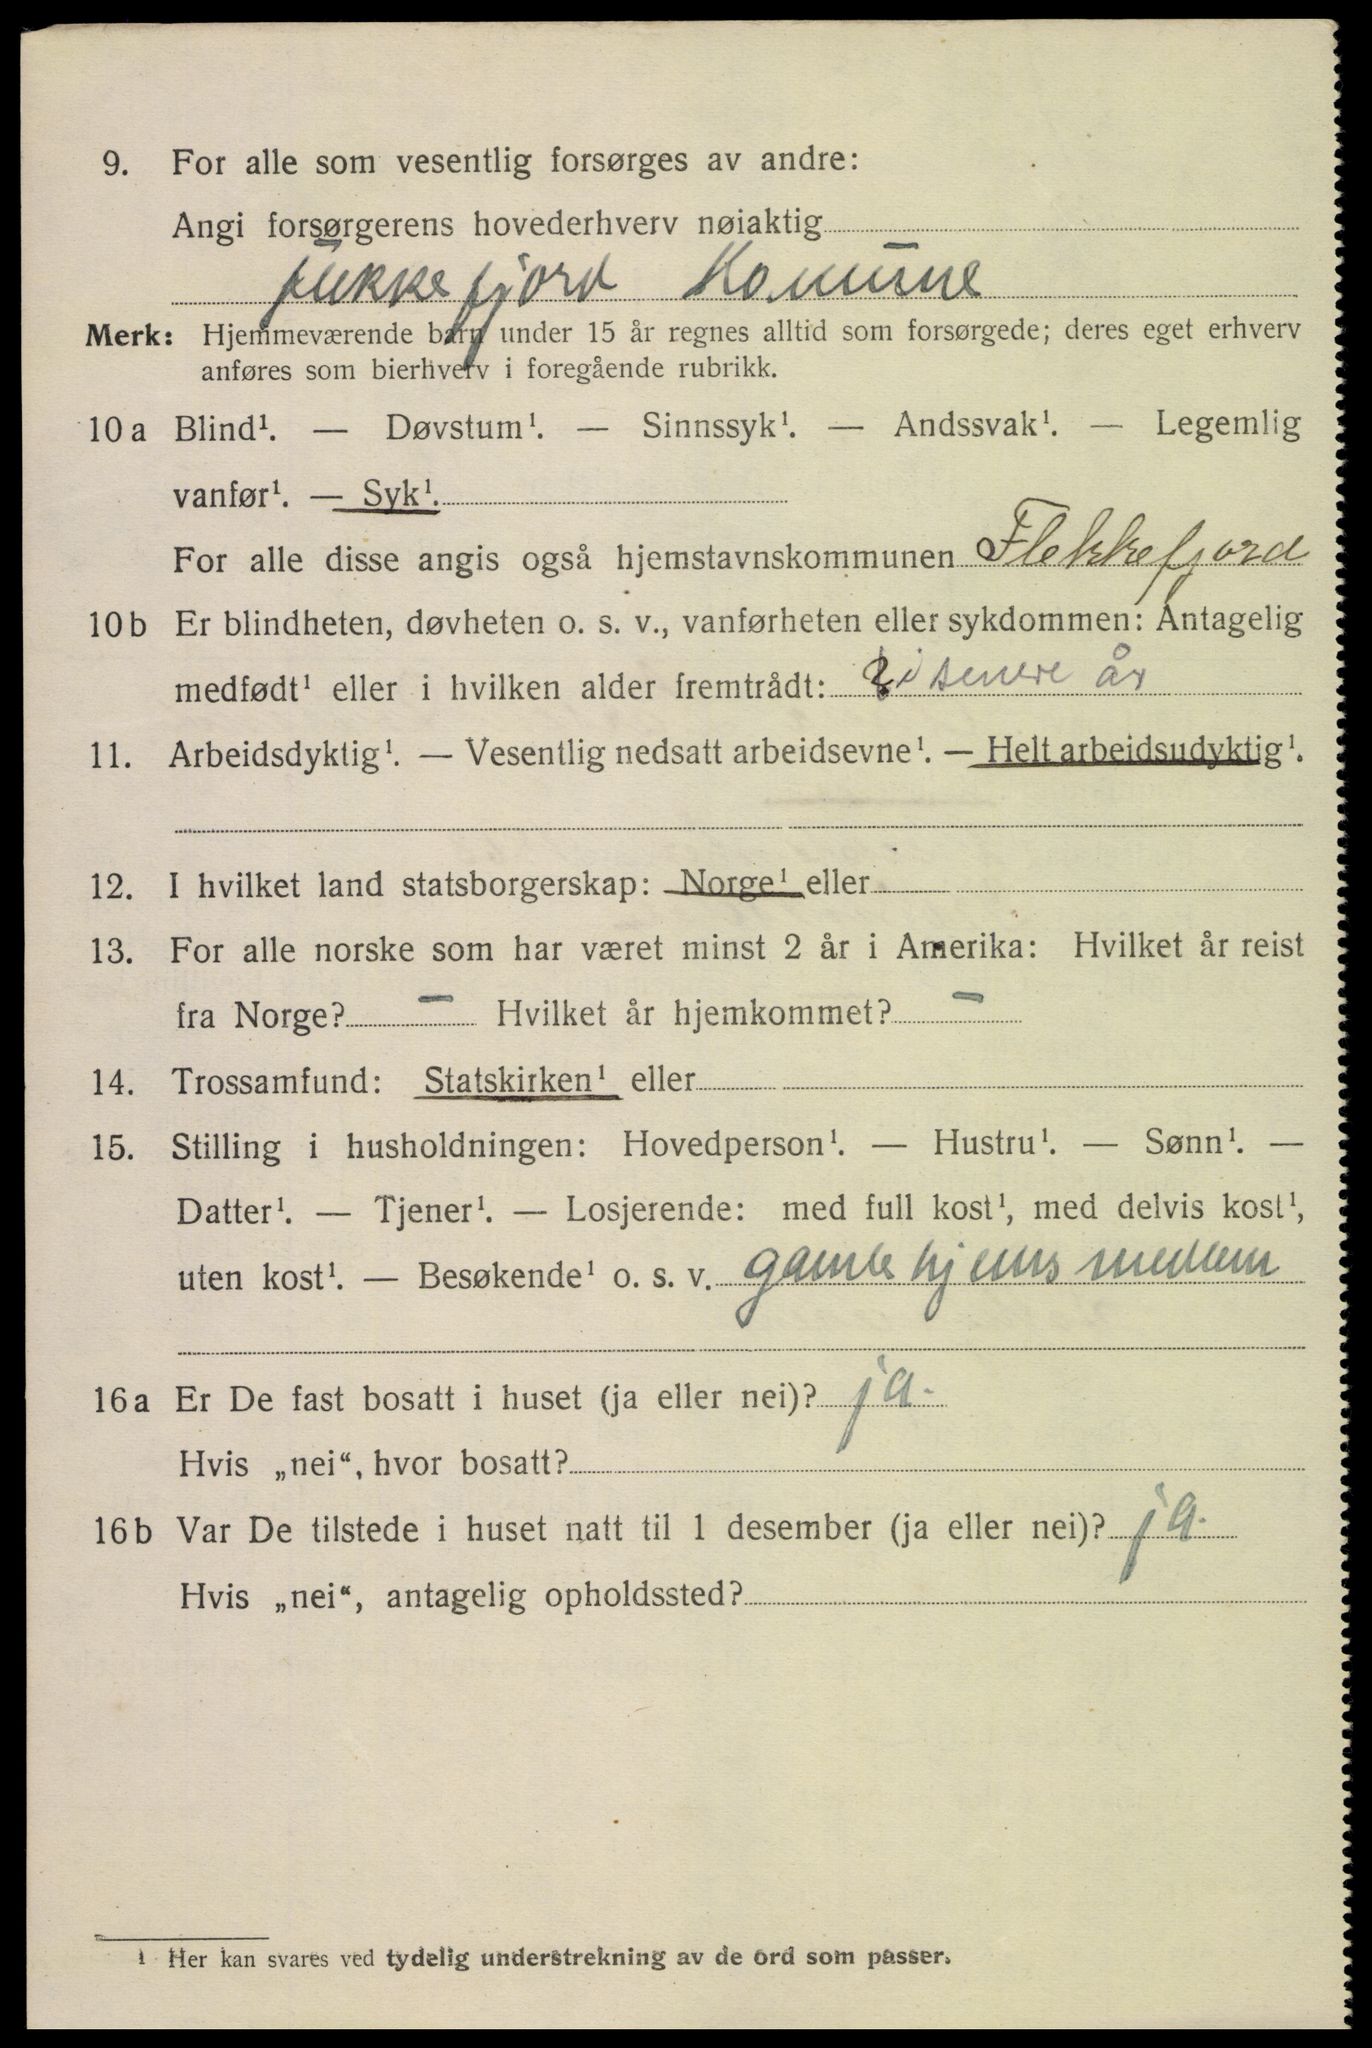 9. For alle som vesentlig forsørges av andre:
Angi forsørgerens hovederhverv nøiaktig
flekkefjord Komune
Merk: Hjemmeværende barn under 15 år regnes alltid som forsørgede; deres eget erhverv
anføres som bierhverv i foregående rubrikk.
10 a Blind¹. — Døvstum¹. — Sinnssyk¹. — Andssvak¹. — Legemlig
vanfør¹. — Syk¹.
For alle disse angis også hjemstavnskommunen Flekkefjord
10 b Er blindheten, døvheten o. s. v., vanførheten eller sykdommen: Antagelig
medfødt¹ eller i hvilken alder fremtrådt: i senere år
11. Arbeidsdyktig¹. — Vesentlig nedsatt arbeidsevne¹. — Helt arbeidsudyktig¹.
12. I hvilket land statsborgerskap: Norge¹ eller
13. For alle norske som har været minst 2 år i Amerika: Hvilket år reist
fra Norge? — Hvilket år hjemkommet? —
14. Trossamfund: Statskirken¹ eller
15. Stilling i husholdningen: Hovedperson¹. — Hustru¹. — Sønn¹. —
Datter¹. — Tjener¹. — Losjerende: med full kost¹, med delvis kost¹,
uten kost¹. — Besøkende¹ o. s. v. gamlehjems medlem
16 a Er De fast bosatt i huset (ja eller nei)? ja.
Hvis „nei“, hvor bosatt?
16 b Var De tilstede i huset natt til 1 desember (ja eller nei)? ja.
Hvis „nei“, antagelig opholdssted?
1 Her kan svares ved tydelig understrekning av de ord som passer.